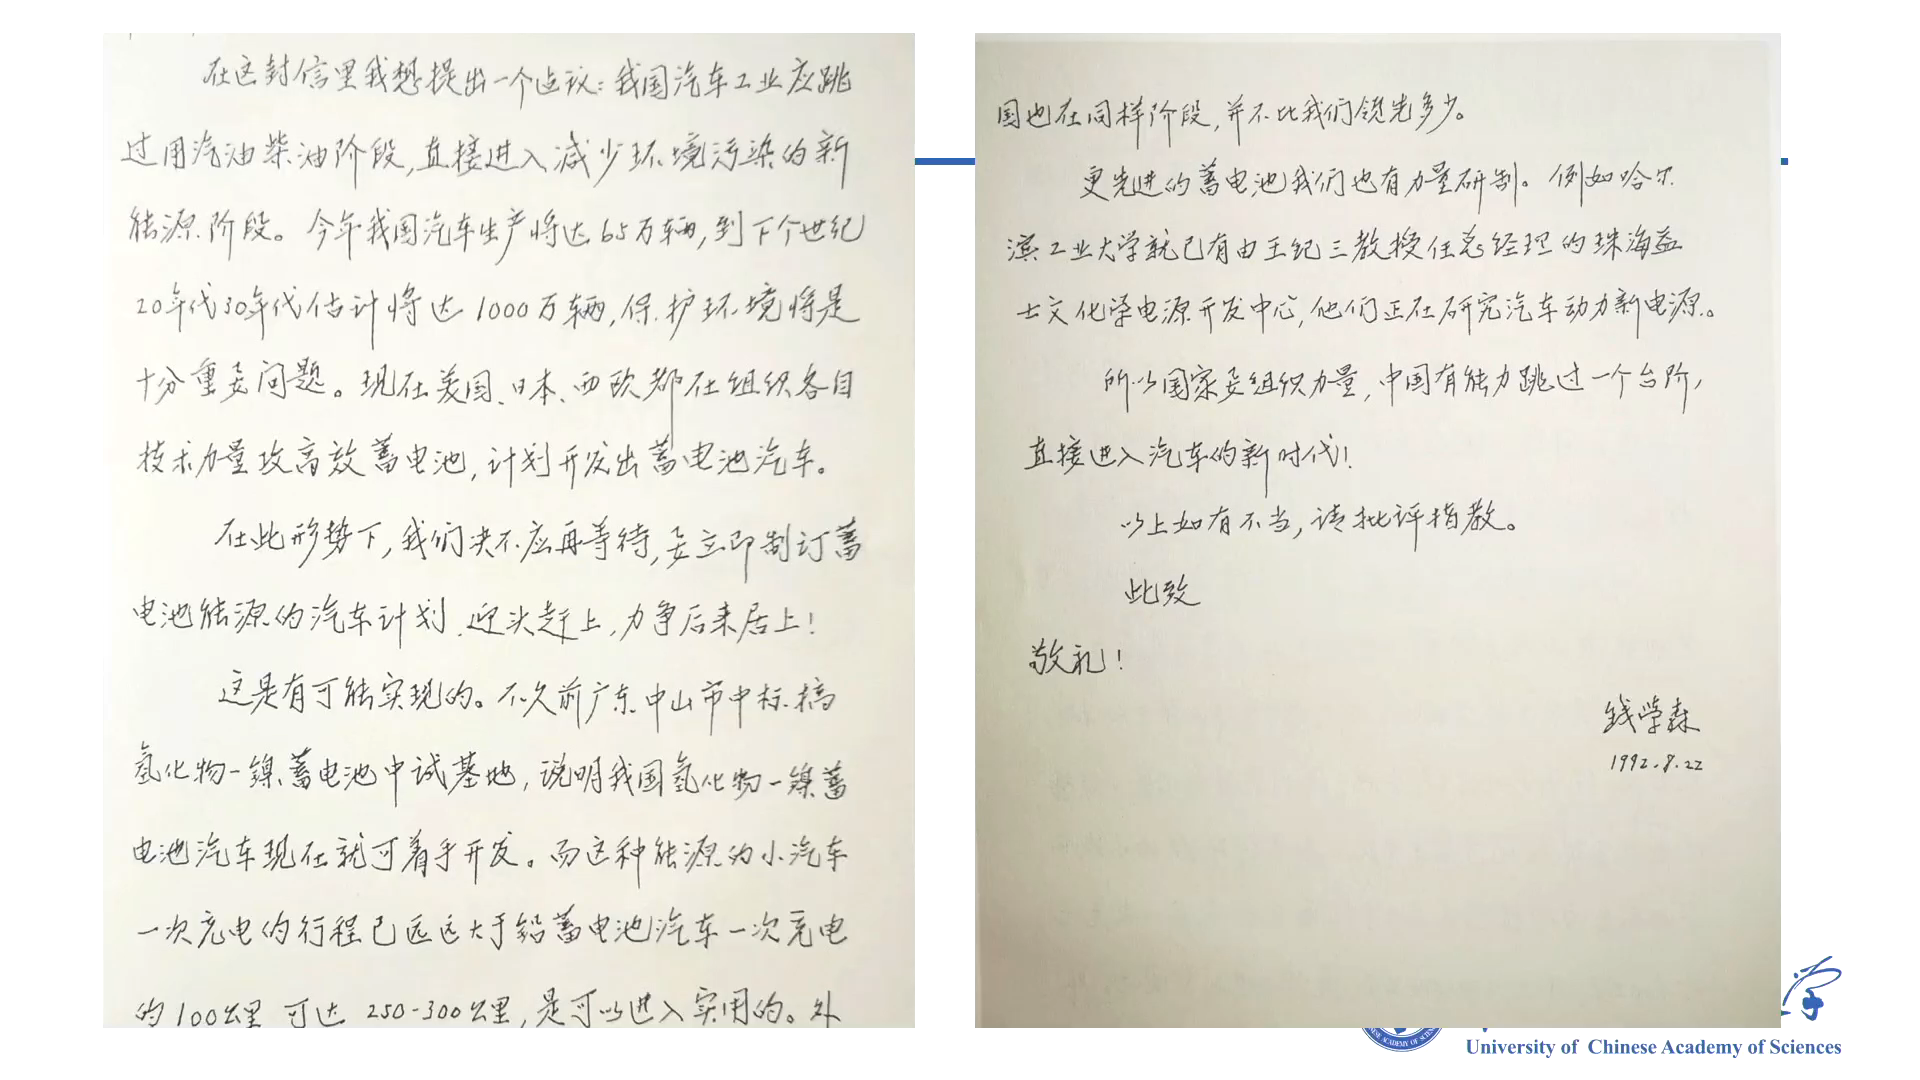 在这封信里我想提出一个建议:我国汽车工业应跳
过用汽油柴油阶段,直接进入减少环境污染的新
能源阶段。今年我国汽车生产将达65万辆,到下个世纪
20年代30年代估计将达1000万辆,保护环境将是
十分重要问题。现在美国、日本、西欧都在组织各自
技术力量攻高效蓄电池,计划开发出蓄电池汽车。
在此形势下,我们决不应再等待,要立即制订蓄
电池能源的汽车计划,迎头赶上,力争后来居上!
这是有可能实现的。不久前广东中山市中标搞
氢化物-镍蓄电池中试基地,说明我国氢化物-镍蓄
电池汽车现在就可着手开发。而这种能源的小汽车
一次充电的行程已远远大于铅蓄电池汽车一次充电
的100公里 可达 250-300公里,是可以进入实用的。外
国也在同样阶段,并不比我们领先多少。
更先进的蓄电池我们也有力量研制。例如哈尔
滨工业大学就已有由王纪三教授任总经理的珠海益
士文化学电源开发中心,他们正在研究汽车动力新电源。
所以国家要组织力量,中国有能力跳过一个台阶,
直接进入汽车的新时代!
以上如有不当,请批评指教。
此致
敬礼!
钱学森
1992.8.22
University of Chinese Academy of Sciences